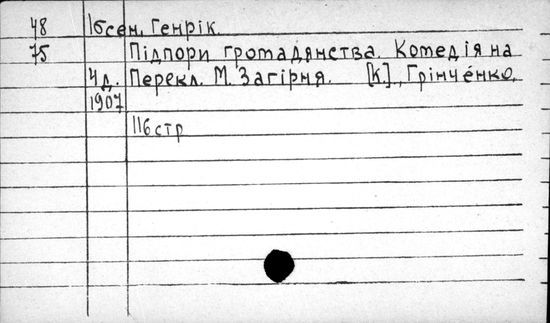 48 Ібсен, Генрік.
75 Підпори громадянства. Комедія на
4 д. Перекл. М. Загірня. [К]., Грінченко,
1907
116 стр